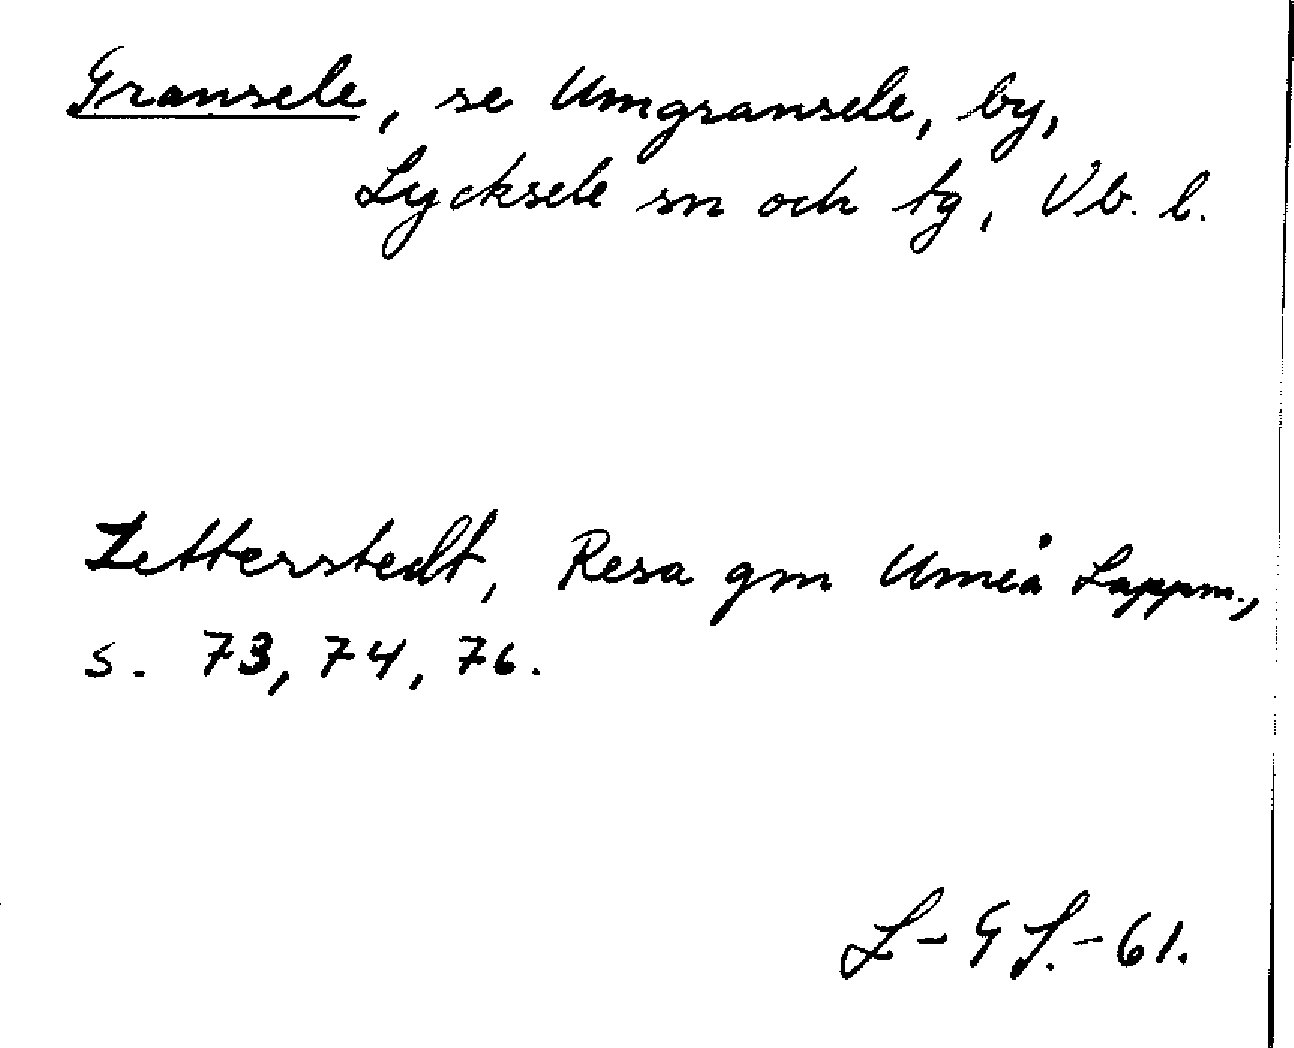 Gransele, se Umgransele, by,
Lycksele sn och tg, Vb. l.
Zetterstedt, Resa gm Umeå Lappm.,
s. 73, 74, 76.
L-G S.-61.